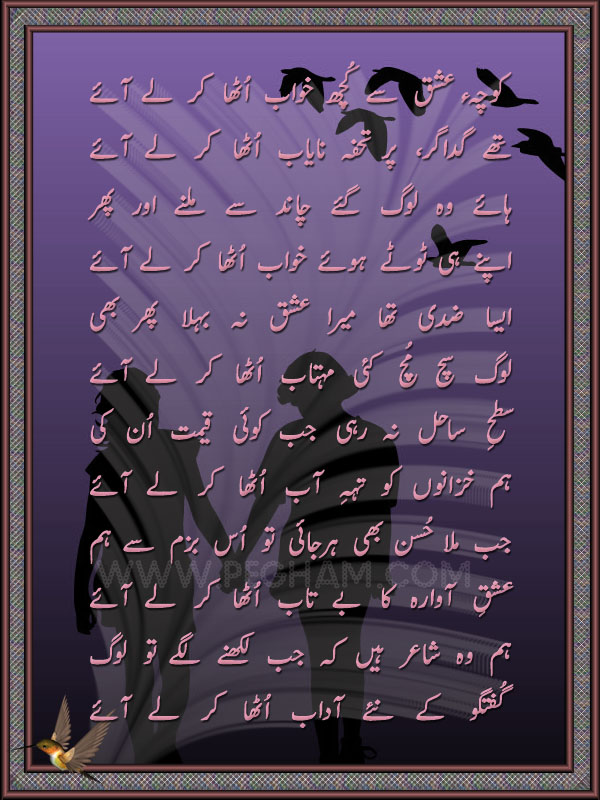 کوچہء عشق سے کُچھ خواب اُٹھا کر لے آئے
تھے گداگر، پر تحفہ نایاب اُٹھا کر لے آئے
ہائے وہ لوگ گئے چاند سے ملنے اور پھر
اپنے ہی ٹوٹے ہوئے خواب اُٹھا کر لے آئے
ایسا ضدی تھا میرا عشق نہ بہلا پھر بھی
لوگ سچ مُچ کئی مہتاب اُٹھا کر لے آئے
سطحِ ساحل نہ رہی جب کوئی قیمت اُن کی
ہم خزانوں کو تہہِ آب اُٹھا کر لے آئے
جب ملا حُسن بھی ہرجائی تو اُس بزم سے ہم
عشقِ آوارہ کا بے تاب اُٹھا کر لے آئے
ہم وہ شاعر ہیں کہ جب لکھنے لگے تو لوگ
گُفتگو کے نئے آداب اُٹھا کر لے آئے
WWW.PEGHAM.COM